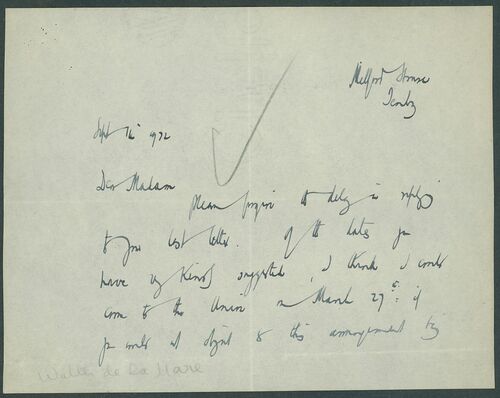 Milford House
Tenby
Sept 1922
Dear Madam
Please forgive the delay in reply
to your last letter. Of the dates you
have so kindly suggested, I think I could
come to the Union on March 27th: if
you would not object to this arrangement
Walter de la Mare